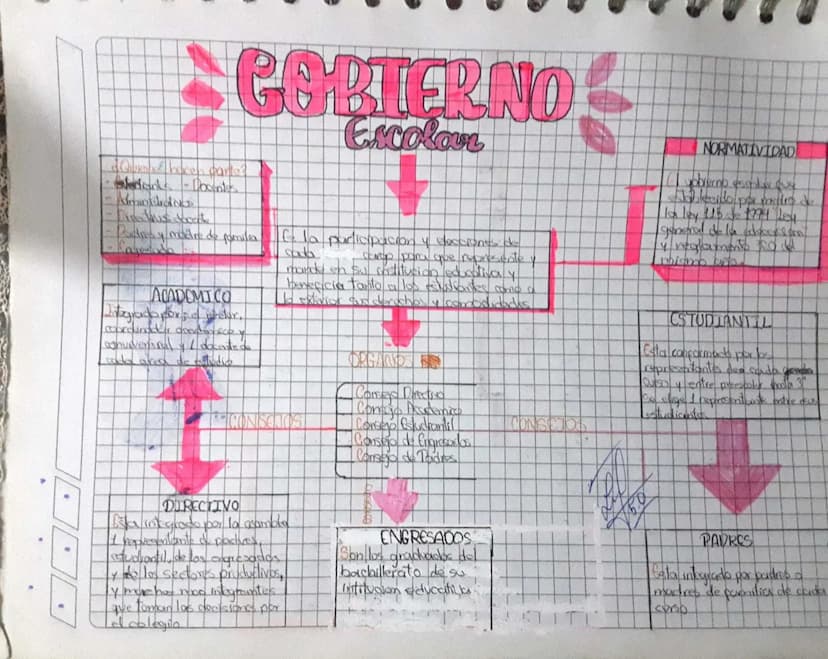 GOBIERNO
Escolar
hacen parte?
- Estudiantes - Docentes
- Administrativos
- Directivos docente
- Padres y madre de familia
NORMATIVIDAD
El gobierno escolar que
establecido por medio de
la ley 115 de 1994 ley
general de la educacion
y reglamento
mismo
Es la participacion y decisiones de
cada cargo para que represente y
mande en su institucion educativa y
beneficia tanto a los estudiantes como a
la exterior sus derechos y comodidades
ACADEMICO
Integrado por: el rector,
coordinador academico y
convivencial y 1 docente de
cada area de estudio
ORGANOS
Consejo Directivo
Consejo Academico
Consejo Estudiantil
Consejo de Engresados
Consejo de Padres
CONSEJOS
CONSEJOS
ESTUDIANTIL
Esta conformado por los
representantes de cada
curso y entre preescolar hasta 3°
se elige 1 representante entre sus
estudiantes
5.0
DIRECTIVO
Esta integrado por la asamblea
1 representante de padres,
estudiantil, de los egresados
y de los sectores productivos,
y muchos mas integrantes
que toman las decisiones por
el colegio
ENGRESADOS
Son los graduados del
bachillerato de su
intitucion educativa
PADRES
Esta integrado por padres o
madres de familia de cada
curso